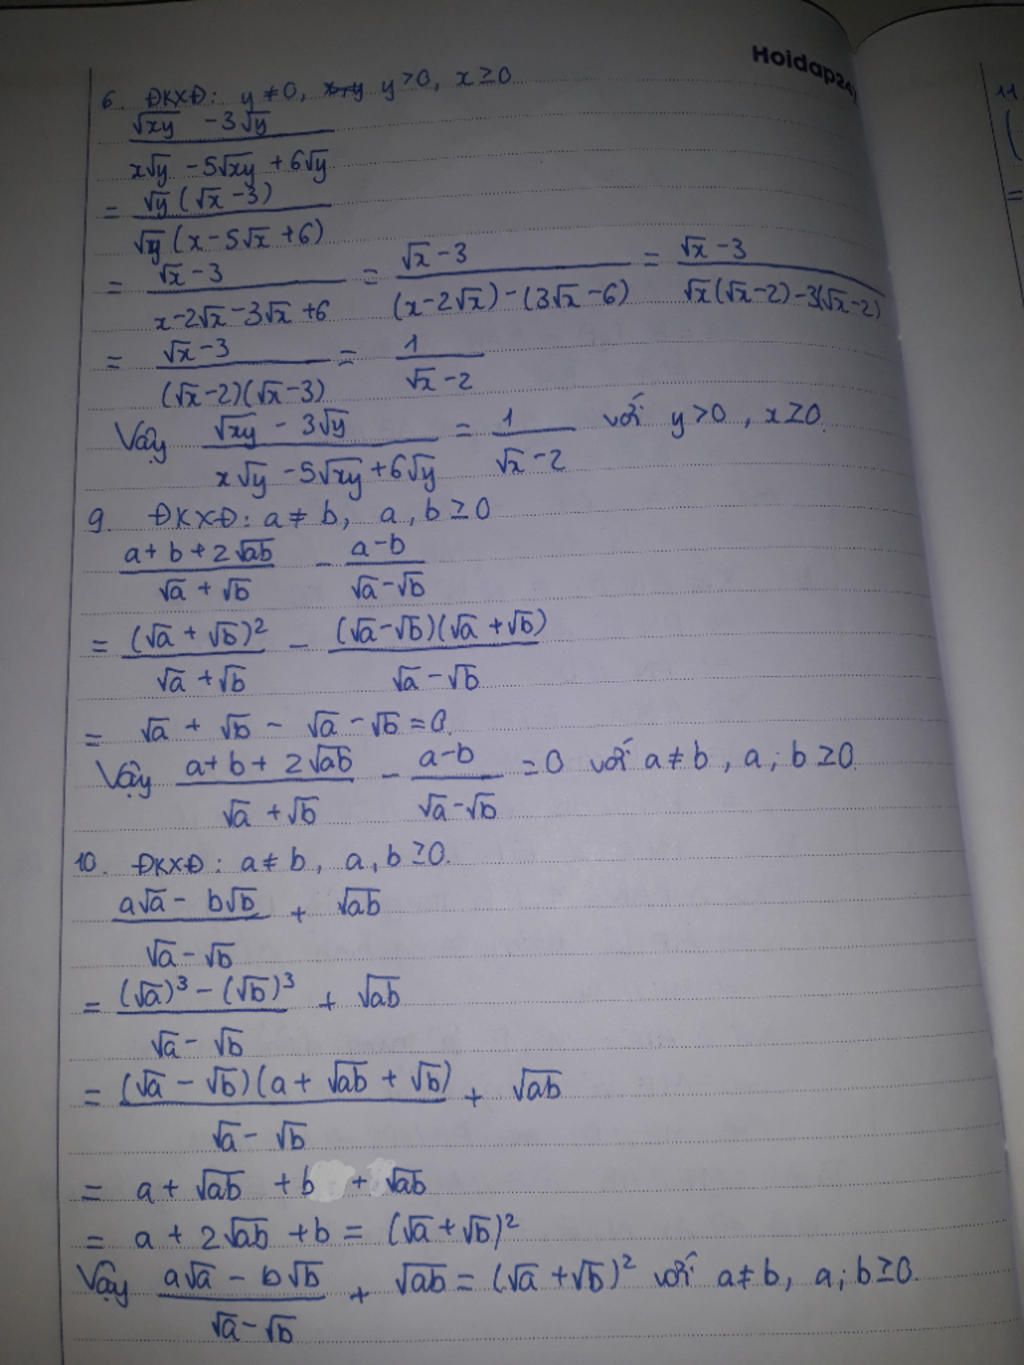 Hoidap247
6. ĐKXĐ: y ≠ 0, y > 0, x ≥ 0
(√xy - 3√y) / (x√y - 5√xy + 6√y)
= √y(√x - 3) / √y(x - 5√x + 6)
= (√x - 3) / (x - 2√x - 3√x + 6) = (√x - 3) / ((x - 2√x) - (3√x - 6)) = (√x - 3) / (√x(√x - 2) - 3(√x - 2))
= (√x - 3) / ((√x - 2)(√x - 3)) = 1 / (√x - 2)
Vậy (√xy - 3√y) / (x√y - 5√xy + 6√y) = 1 / (√x - 2) với y > 0, x ≥ 0.
9. ĐKXĐ: a ≠ b, a, b ≥ 0
(a + b + 2√ab) / (√a + √b) - (a - b) / (√a - √b)
= (√a + √b)² / (√a + √b) - (√a - √b)(√a + √b) / (√a - √b)
= √a + √b - √a - √b = 0.
Vậy (a + b + 2√ab) / (√a + √b) - (a - b) / (√a - √b) = 0 với a ≠ b, a; b ≥ 0.
10. ĐKXĐ: a ≠ b, a, b ≥ 0.
(a√a - b√b) / (√a - √b) + √ab
= ((√a)³ - (√b)³) / (√a - √b) + √ab
= (√a - √b)(a + √ab + √b) / (√a - √b) + √ab
= a + √ab + b + √ab
= a + 2√ab + b = (√a + √b)²
Vậy (a√a - b√b) / (√a - √b) + √ab = (√a + √b)² với a ≠ b, a; b ≥ 0.
11
(
=